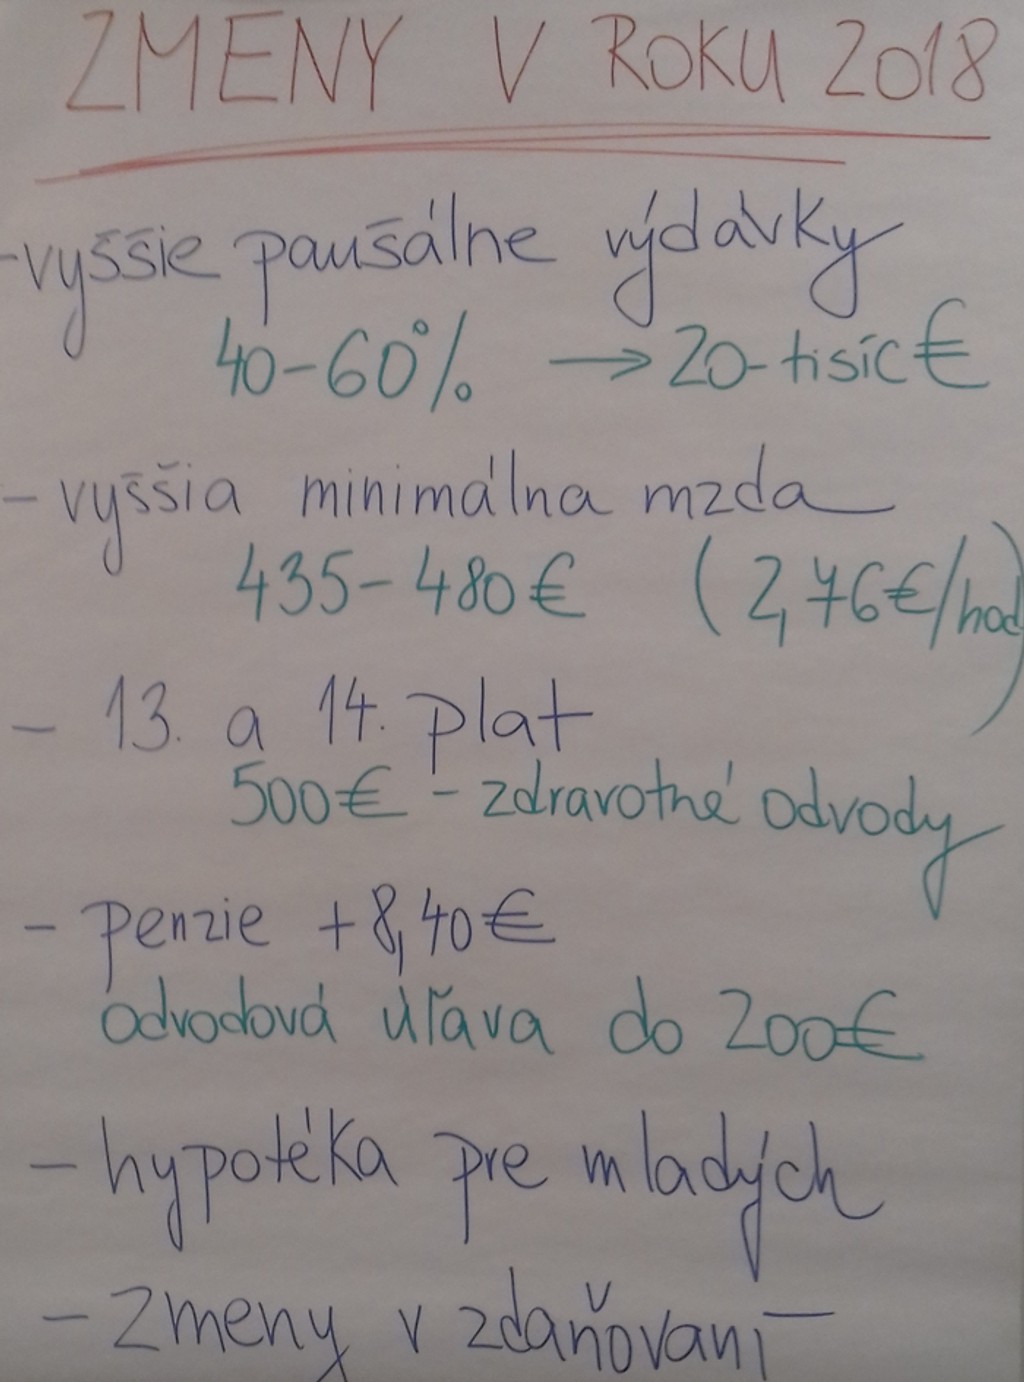 ZMENY V ROKU 2018
- vyššie paušálne výdavky
40-60% → 20-tisíc €
- vyššia minimálna mzda
435-480€ (2,76€/hod)
- 13. a 14. plat
500€ - zdravotné odvody
- penzie +8,40€
odvodová úľava do 200€
- hypotéka pre mladých
- zmeny v zdaňovaní